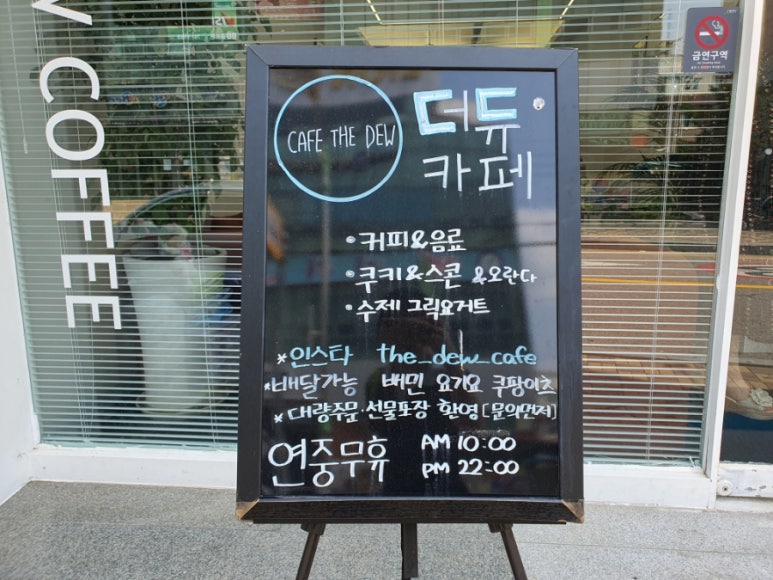 W COFFEE
금연구역
CAFE THE DEW
더듀
카페
• 커피&음료
• 쿠키&스콘 &오란다
• 수제 그릭요거트
*인스타 the_dew_cafe
*배달가능 배민 요기요 쿠팡이츠
* 대량주문·선물포장 환영[문의먼저]
연중무휴 AM 10:00
PM 22:00